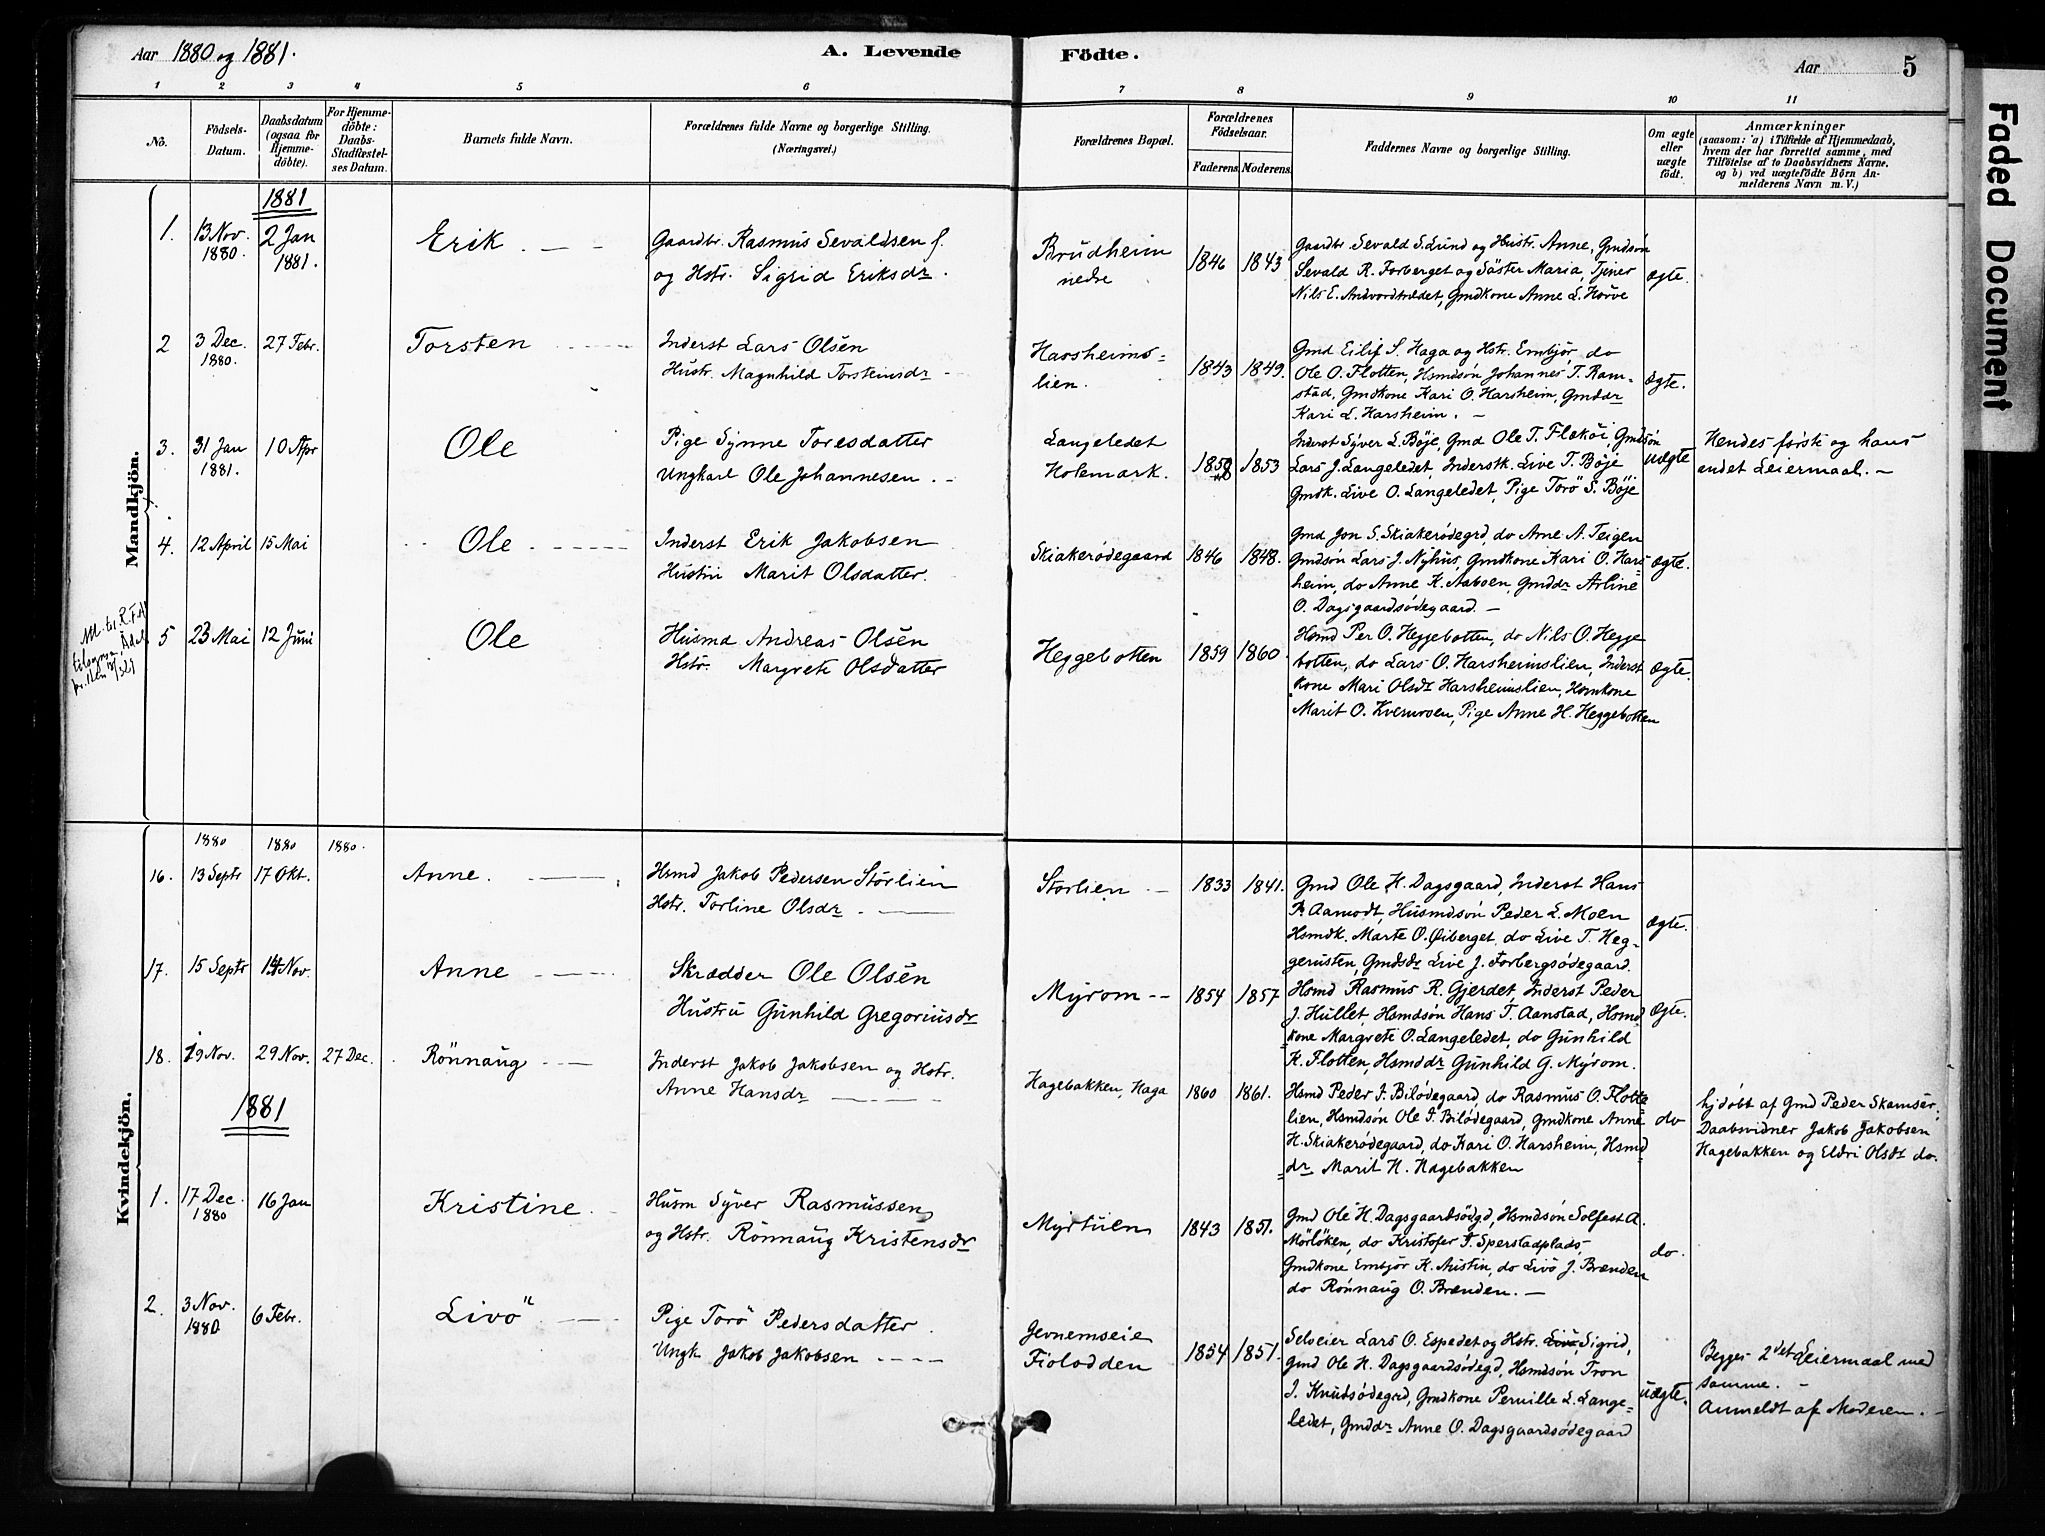 Aar 1880 og 1881.
A. Levende Födte.
Aar 5
1 2 3 4 5 6 7 8 9 10 11
No.
Födsels-Datum.
Daabsdatum (ogsaa for Hjemmedöbte).
For Hjemmedöbte: Daabs-Stadfæstelses Datum.
Barnets fulde Navn.
Forældrenes fulde Navne og borgerlige Stilling.
(Næringsvei.)
Forældrenes Bopæl.
Forældrenes Födselsaar.
Faderens. Moderens.
Faddernes Navne og borgerlige Stilling.
Om ægte eller uægte födt.
Anmærkninger
(saasom: a) i Tilfælde af Hjemmedaab,
hvem der har forrettet samme, med
Tilföielse af to Daabsvidners Navne,
og b) ved uægtefödte Börn Anmelderens Navn m. V.)
Faded Document
Mandkjön.
1881
1. 13 Nov. 1880. 2 Jan 1881. Erik
Gaardbr. Rasmus Sevaldsen f.
og Hstr. Sigrid Eriksdr.
Brudheim nedre
1846 1843
Gaardbr. Sevald S. Lund og Hustr. Anne, Gmdsøn
Sevald R. Forberget og Söster Maria, Tjener
Nils E. Andvordtrædet, Gmdkone Anne L. Hørve
Ægte.
2 3 Dec. 1880. 27 Febr. Torsten
Inderst Lars Olsen
Hustr. Magnhild Torsteinsdr
Harsheims-
lien.
1843 1849.
Gmd Eilif S. Haga og Hstr. Embjør, do
Ole O. Flotten, Hsmdsøn Johannes T. Ram-
stad, Gmdkone Kari O. Harsheim, Gmddr
Kari L. Harsheim.
Ægte.
3. 31 Jan 1881. 10 Apr Ole
Pige Synne Toresdatter
Ungkarl Ole Johannesen
Langeledet
Holemark.
1858 1853
Inderst Syver L. Böje, Gmd Ole T. Flækøi, Gmdsøn
Lars J. Langeledet, Inderstk. Live T. Böje
Gmdk. Live O. Langeledet, Pige Torö S. Böje
Uægte
Hendes første og hans
andet Leiermaal.
4. 12 April 15 Mai Ole
Inderst Erik Jakobsen
Hustru Marit Olsdatter.
Skiakerødegaard
1846 1848.
Gmd Jon S. Skiakerødegrd, do Arne A. Teigen
Gmdsøn Lars J. Nyhus, Gmdkone Kari O. Hars-
heim, do Anne K. Aaboen, Gmddr Arline
O. Dagsgaardsødegaard.
Ægte.
5 23 Mai 12 Juni Ole
Husmd Andreas Olsen
Hstr. Margrete Olsdatter
Heggebotten
1859 1860
Hsmd Per O. Heggebotten, do Nils O. Hegge
botten, do Lars O. Harsheimslien, Inderst
kone Mari Olsdr Harsheimslien, Hsmkone
Marit O. Kvernroen, Pige Anne H. Heggebotten
Ægte.
Kvindekjön.
1880 1880 1880.
16. 13 Septr 17 Okt. Anne.
Hsmd Jakob Pedersen Storlien
Hstr. Torline Olsdr.
Storlien
1833 1841.
Gmd Ole H. Dagsgaard, Inderst Hans
P. Aamodt, Husmdsøn Peder L. Moen
Hsmdk. Marte O. Øiberget, do Live T. Heg-
gerusten, Gmdsdr Live J. Forbergsødegaard.
Ægte.
17. 15 Septr 14 Nov. Anne
Skrædder Ole Olsen
Hustru Gunhild Gregoriusdr
Myrom
1854 1857
Hsmd Rasmus R. Gjerdet, Inderst Peder
J. Hullet, Hsmdsøn Hans T. Aanstad, Hsmd
kone Margrete O. Langeledet, do Gunhild
K. Flotten, Hsmddr Gunhild G. Myrom.
Ægte.
18. 19 Nov. 29 Nov. 27 Dec. Rönnaug
Inderst Jakob Jakobsen og Hstr.
Anne Hansdr
Hagebakken, Haga
1860 1861.
Hsmd Peder J. Bilødegaard, do Rasmus O. Flotte
lien, Hsmdsøn Ole J. Bilødegaard, Gmdkone Anne
H. Skiakerødegaard, do Kari O. Harsheim, Hsmd
dr Marit H. Hagebakken
do
hjdøbt af Gmd Peder Skamsar.
Daabsvidner Jakob Jakobsen
Hagebakken og Eldri Olsdr do.
1881
1. 17 Dec. 1880 16 Jan Kristine
Husm Syver Rasmussen
og Hstr. Rönnaug Kristensdr
Myrtuen
1843 1851.
Gmd Ole H. Dagsgaardsødgd, Hsmdsøn Solfest A.
Mörlöken, do Kristofer J. Sperstadplads,
Gmdkone Embjør K. Austin, do Livö J. Brænden
do Rønnaug O. Brænden.
do.
2. 3 Nov. 1880 6 Febr. Livö
Pige Torö Pedersdatter
Ungk Jakob Jakobsen
Jevnemseie
Fiolodden
1854 1851.
Selveier Lars O. Espedet og Hstr. Sigrid,
Gmd Ole H. Dagsgaardsødegd, Hsmdsøn Tron
J. Knudsødegrd, Gmdkone Pernille L. Lange-
ledet, Gmddr Anne O. Dagsgaardsødegaard
Uægte.
Begges 2det Leiermaal med
samme.
Anmeldt af Moderen.